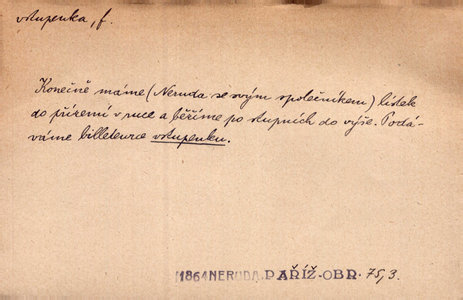 vstupenka, f.
Konečně máme (Neruda se svým společníkem) lístek
do přízemí v ruce a běžíme po stupních do výše. Podá-
váme billeteurce vstupenku.
1864 NERUDA, PAŘÍŽ-OBR. 75,3.